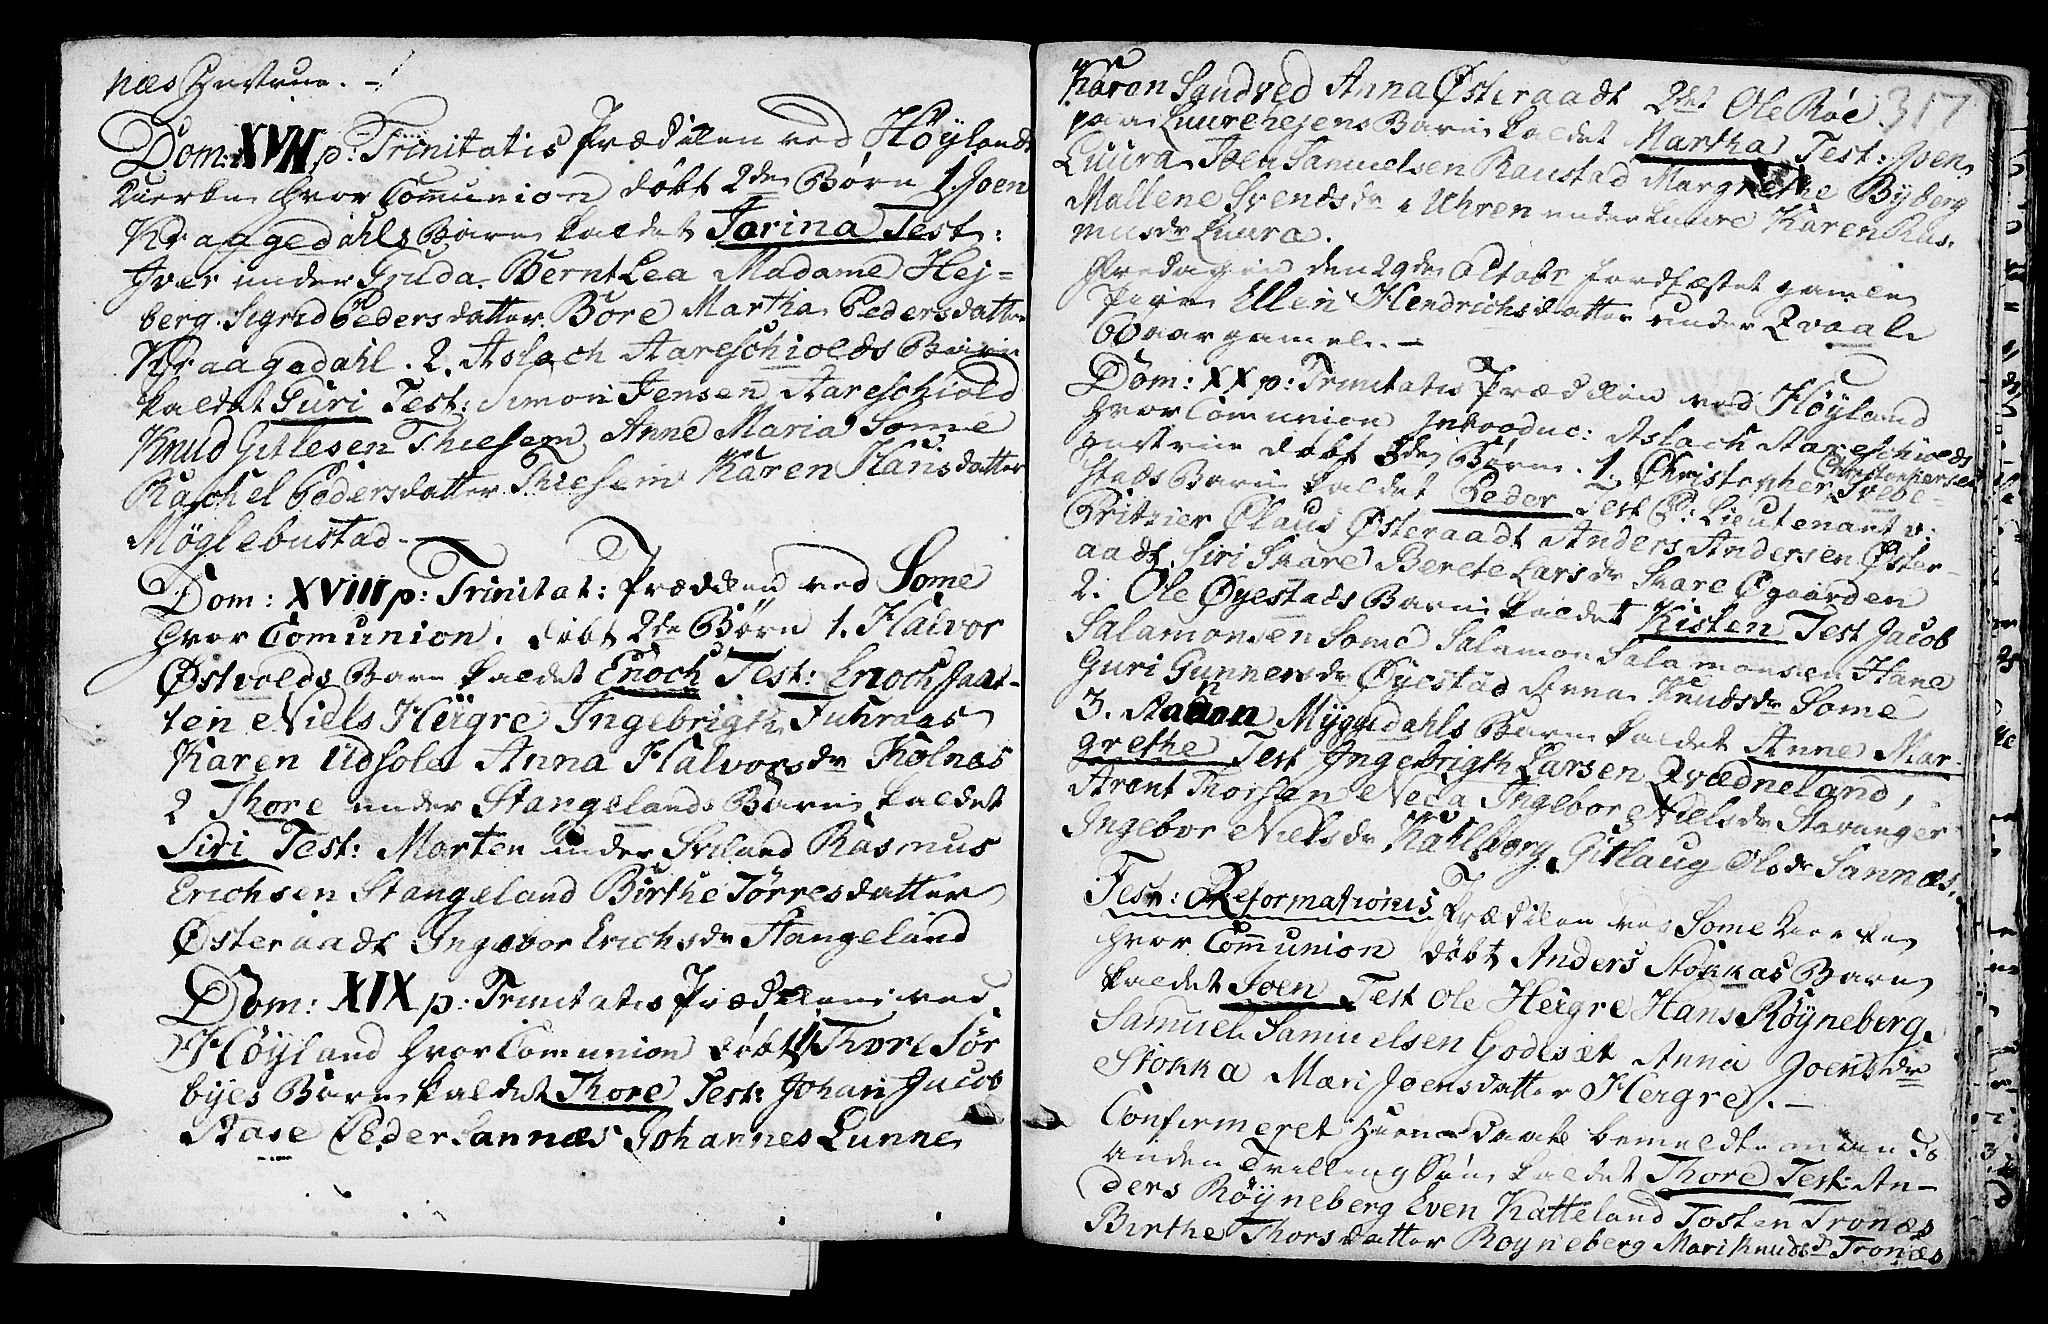 næs Hustrue. -
Dom: XVII p: Trinitatis Prædiken ved Höylands
Kierke hvor Communion döbt 2de Börn 1. Joen
Kraagedahls Barn kaldet Tarina Test:
Iver under Gruda. Bernt Lea Madame Hej-
berg. Sigrid Pedersdatter Bore Martha Pedersdatter
Kraagedahl. 2. Aslach Aareschiolds Barn
kaldet Guri Test: Simon Jensen Aareschiold
Knud Gitlesen Thiesem Anne Maria Some
Rachel Pedersdatter Thiesem Karen Hansdatter
Möglebustad -
Dom: XVIII p: Trinitat: Prædiken ved Some
hvor Comunion. döbt 2de Börn 1. Halvor
Østvolds Barn kaldet Enoch Test: Enoch Jaat-
ten Niels Heigre Ingebrigth Fuhrnæs
Karen Udsola Anna Halvorsdr Kolnæs
2 Thore under Stangelands Barn kaldet
Siri Test: Morten under Sviland Rasmus
Erichsen Stangeland Birthe Törresdatter
Østeraadt Ingebor Erichsdr Stangeland
Dom: XIX p: Trinitatis Prædiken ved
Höyland hvor Comunion döbt 1. Thore Sör
byes Barn kaldet Thore Test: Johan Jacob
Stase Peder Sannæs Johannes Lunne
Karen Sandved Anna Østeraadt 2det Ole Roe 317
paa Luurehejens Barn kaldet Martha Test: Joen
Luura Joen Samuelsen Raustad Margrethe Byberg
Mallene Svendsdr Uhren under Luure Karen Ras-
musdr Luura.
Fredagen den 29de Octobr jordfæstet gamle
Pige Ellen Hendrichsdatter under Qvaale
60 aar gamel. -
Dom: XX p: Trinitatis Prædiken ved Höyland
hvor Comunion Introduc: Aslach Aareschiolds
Hustrue döbt 3de Börn. 1. Christopher Svebe-
Christophersen
stads Barn kaldet Peder Test P: Lieutenant v:
Critzier Claus Østeraadt Anders Andersen Øster-
aadt Siri Skare Berete Larsdr Skare Øgaarden
2. Ole Øyestads Barn kaldet Kisten Test Jacob
Salamonsen Some Salamon Salamonsen Hane
Guri Gunnersdr Øyestad Anna Knudsdr Some
3. Aanon Mygledahls Barn kaldet Anne Mar-
grethe Test Ingebrigth Larsen Qvædneland,
Arent Thorsen Neda Ingebor Nielsdr Stavanger
Ingebor Nielsdr Kahlberg Gitlaug Olsdr Sannæs.
Fest: Reformationis Prædiken ved Some Kierke
hvor Communion döbt Anders Stokkas Barn
kaldet Joen Test Ole Heigre Hans Röyneberg
Samuel Samuelsen Godeset Anna Joensdr
Stokka Mari Joensdatter Heigre. -
Confirmeret Hiemedaabe bemeldte mands
anden Tvilling Sön kaldet Thore Test: An-
ders Röyneberg Even Katteland Tosten Tronæs
Birthe Thorsdatter Royneberg Mari Knudsdr Tronæs